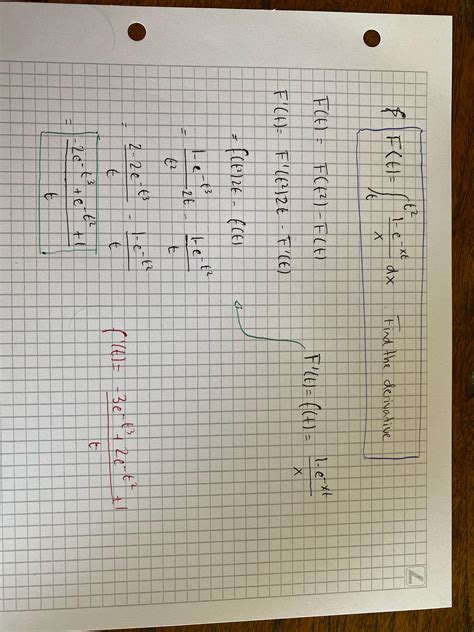 8. F(t) = ∫_t^{t²} (1-e^{-xt})/x dx . Find the derivative
F(t) = F(t²) - F(t)
F'(t) = F'(t²)2t - F'(t)
F'(t) = f(t) = (1-e^{-xt})/x
= f(t²)2t - f(t)
= (1-e^{-t³})/t² 2t - (1-e^{-t²})/t
= (2-2e^{-t³})/t - (1-e^{-t²})/t
= (-2e^{-t³} + e^{-t²} + 1)/t
f'(t) = (-3e^{-t³} + 2e^{-t²} + 1)/t